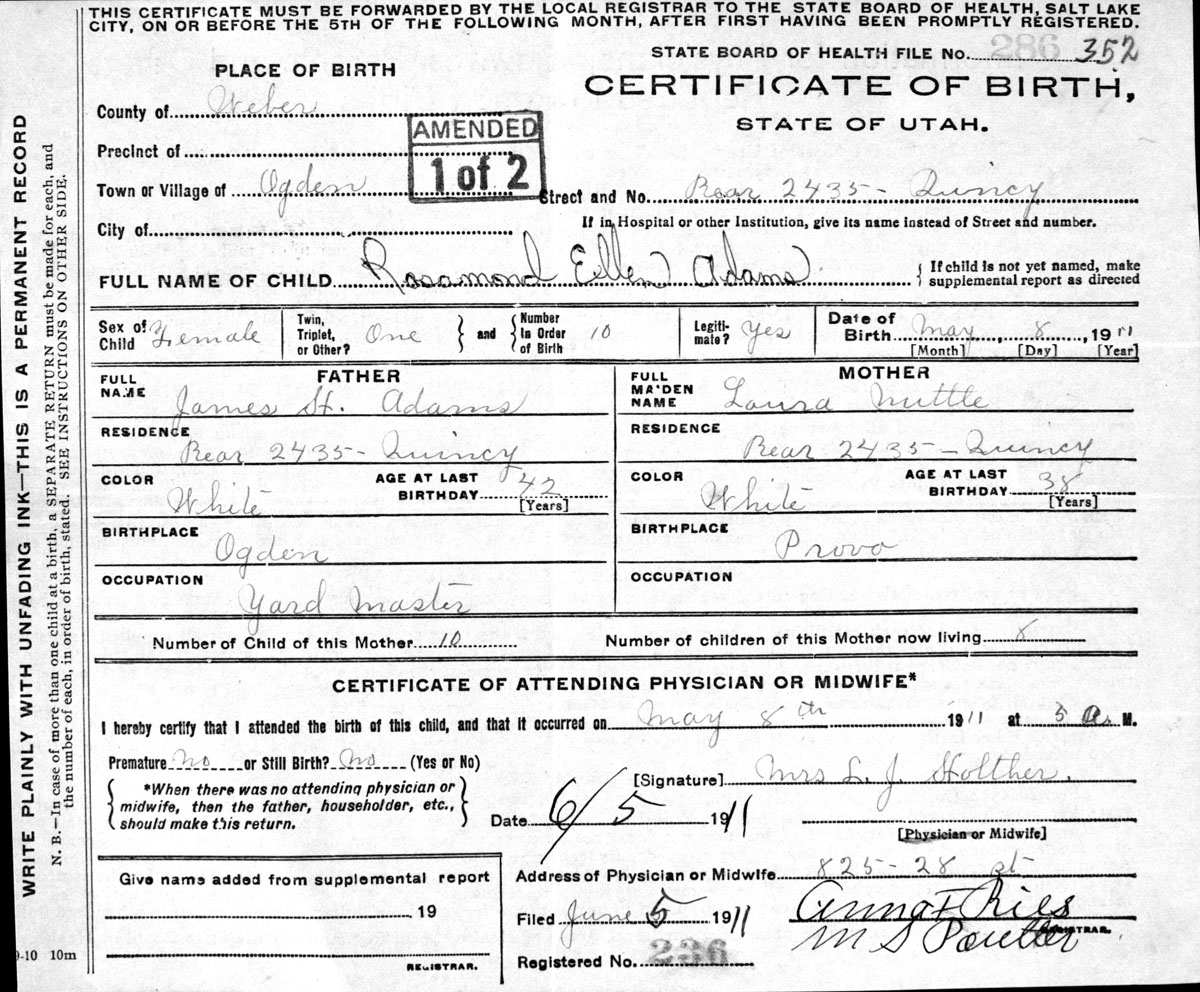 THIS CERTIFICATE MUST BE FORWARDED BY THE LOCAL REGISTRAR TO THE STATE BOARD OF HEALTH, SALT LAKE
CITY, ON OR BEFORE THE 5TH OF THE FOLLOWING MONTH, AFTER FIRST HAVING BEEN PROMPTLY REGISTERED.
STATE BOARD OF HEALTH FILE No. 286 352
PLACE OF BIRTH
CERTIFICATE OF BIRTH,
STATE OF UTAH.
County of Weber
AMENDED
1 of 2
Precinct of
Town or Village of Ogden
Street and No. Rear 2435 - Quincy
City of
If in Hospital or other Institution, give its name instead of Street and number.
FULL NAME OF CHILD Rosamond Ellen Adams
{ If child is not yet named, make
supplemental report as directed
Sex of Child Female
Twin, Triplet, or Other? One } and { Number In Order of Birth 10
Legiti- mate? Yes
Date of Birth May 8, 1911
[Month] [Day] [Year]
FATHER
FULL NAME James H. Adams
RESIDENCE Rear 2435 - Quincy
COLOR White AGE AT LAST BIRTHDAY 42 [Years]
BIRTHPLACE Ogden
OCCUPATION Yard Master
MOTHER
FULL MAIDEN NAME Laura Nuttle
RESIDENCE Rear 2435 - Quincy
COLOR White AGE AT LAST BIRTHDAY 38 [Years]
BIRTHPLACE Provo
OCCUPATION
Number of Child of this Mother 10 Number of children of this Mother now living 8
CERTIFICATE OF ATTENDING PHYSICIAN OR MIDWIFE*
I hereby certify that I attended the birth of this child, and that it occurred on May 8th 1911 at 3 a. M.
Premature No or Still Birth? No (Yes or No)
{ *When there was no attending physician or
midwife, then the father, householder, etc.,
should make this return. }
[Signature] Mrs L. J. Holther.
Date 6/5 1911
[Physician or Midwife]
Give name added from supplemental report
19
REGISTRAR.
Address of Physician or Midwife 825 - 28 st
Filed June 5 1911
Anna F Ries
M S Poulter
REGISTRAR.
Registered No. 236
9-10 10m
WRITE PLAINLY WITH UNFADING INK—THIS IS A PERMANENT RECORD
N. B.—In case of more than one child at a birth, a SEPARATE RETURN must be made for each, and
the number of each, in order of birth, stated. SEE INSTRUCTIONS ON OTHER SIDE.